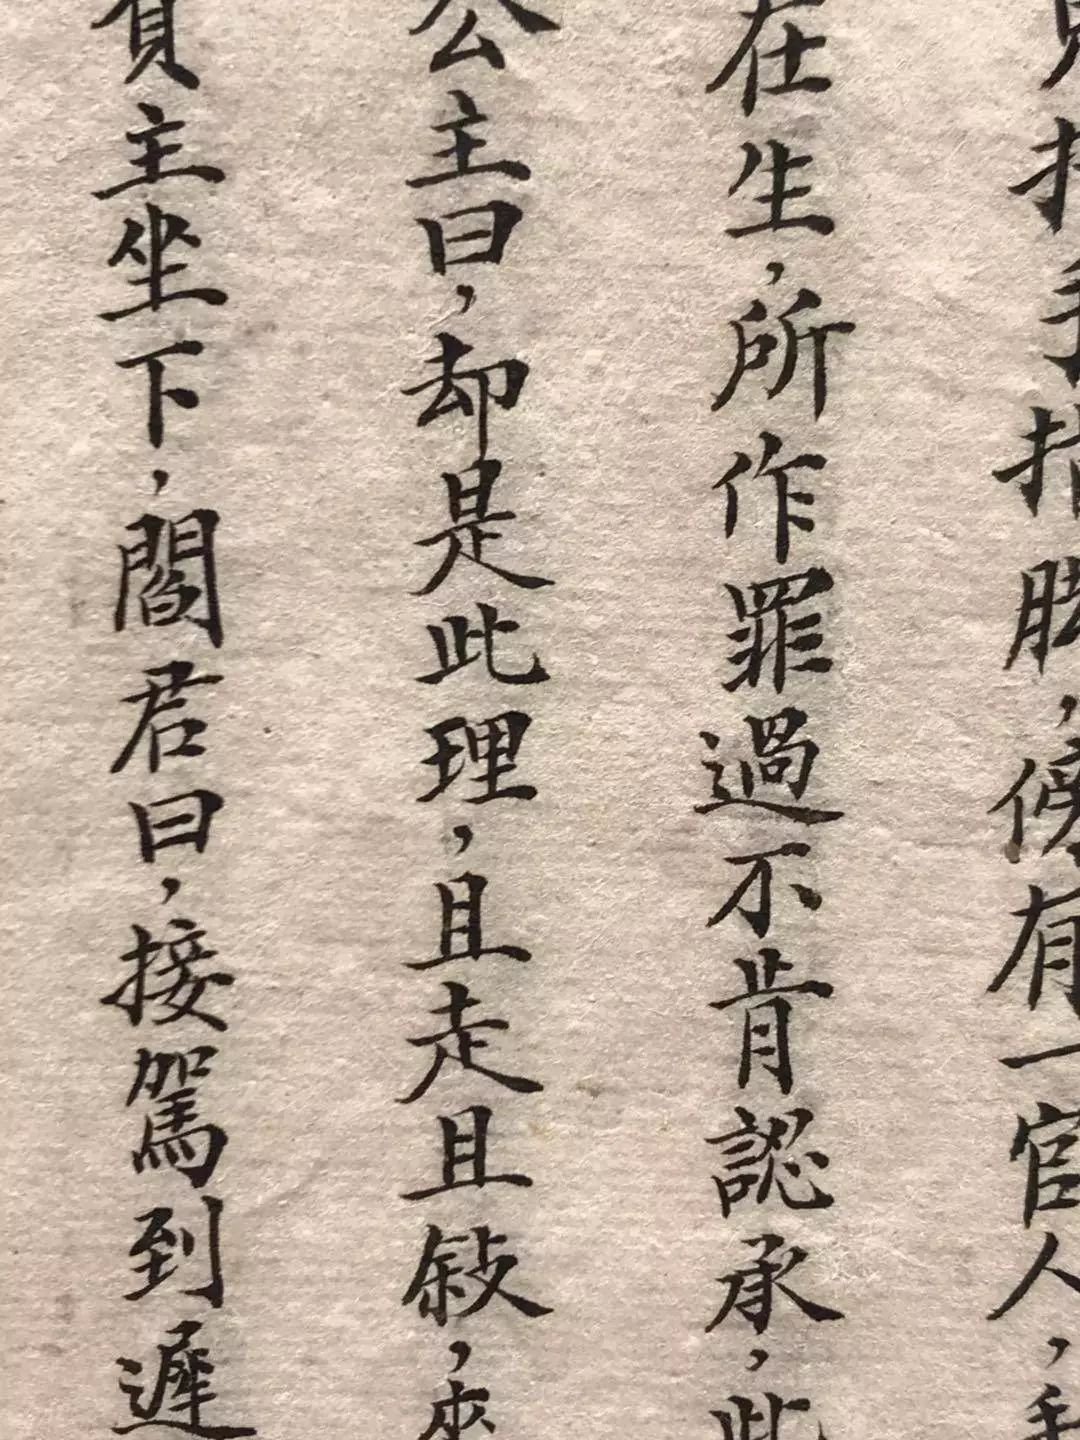 手指脚，傍有一官人，
在生，所作罪過不肯認承，此
公主曰，却是此理，且走且敍，來
賓主坐下，閻君曰，接駕到遲